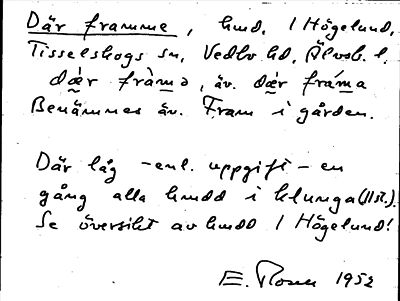 Där framme, hmd. 1 Högelund,
Tisselskogs sn, Vedbo hd, Älvsb. l.
dǽr fràmə, äv. dǽr fráma
Benämnes äv. Fram i gården.
Där låg – enl. uppgift – en
gång alla hmdd i klunga (11 st.).
Se översikt av hmdd 1 Högelund!
E. Rosen 1952